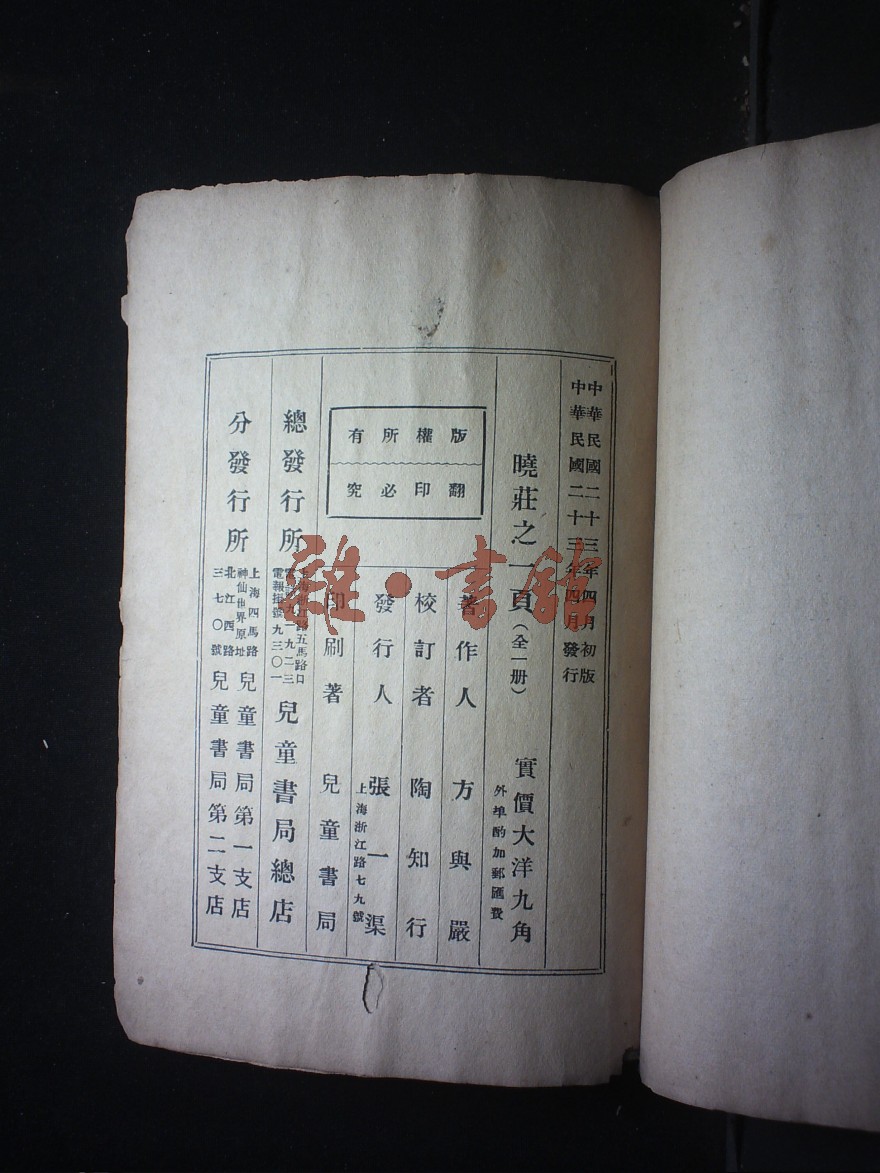 中華民國二十三年四月初版
中華民國二十三年四月發行
曉莊之一頁(全一册)
實價大洋九角
外埠酌加郵匯費
版權所有
翻印必究
著作人 方與嚴
校訂者 陶知行
發行人 張一渠
上海浙江路七九號
印刷著 兒童書局
總發行所
路五馬路口
電報掛號九三〇一
兒童書局總店
分發行所
上海四馬路
神仙世界原址
兒童書局第一支店
北江西路
三七〇號
兒童書局第二支店
雜·書館